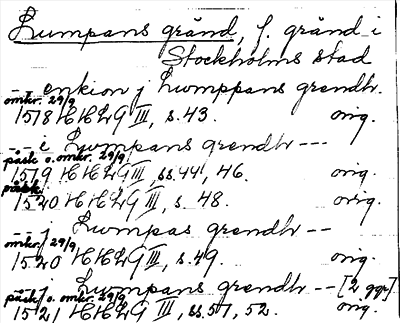 Lumpans gränd, f. gränd i
Stockholms stad
-- enkion j Lwmppans grendh.
omkr. 29/9
1518 HHLG III, s. 43. orig.
-- i Lwmpans grendh ---
påsk o. omkr. 29/9
1519 HHLG III, ss. 44, 46. orig.
påsk
1520 HHLG III, s. 48. orig.
-- j Lwmpas grendh --
omkr. 29/9
1520 HHLG III, s. 49. orig.
-- j Lwmpans grendh -- [2 ggr]
påsk o. omkr. 29/9
1521 HHLG III, ss. 51, 52. orig.